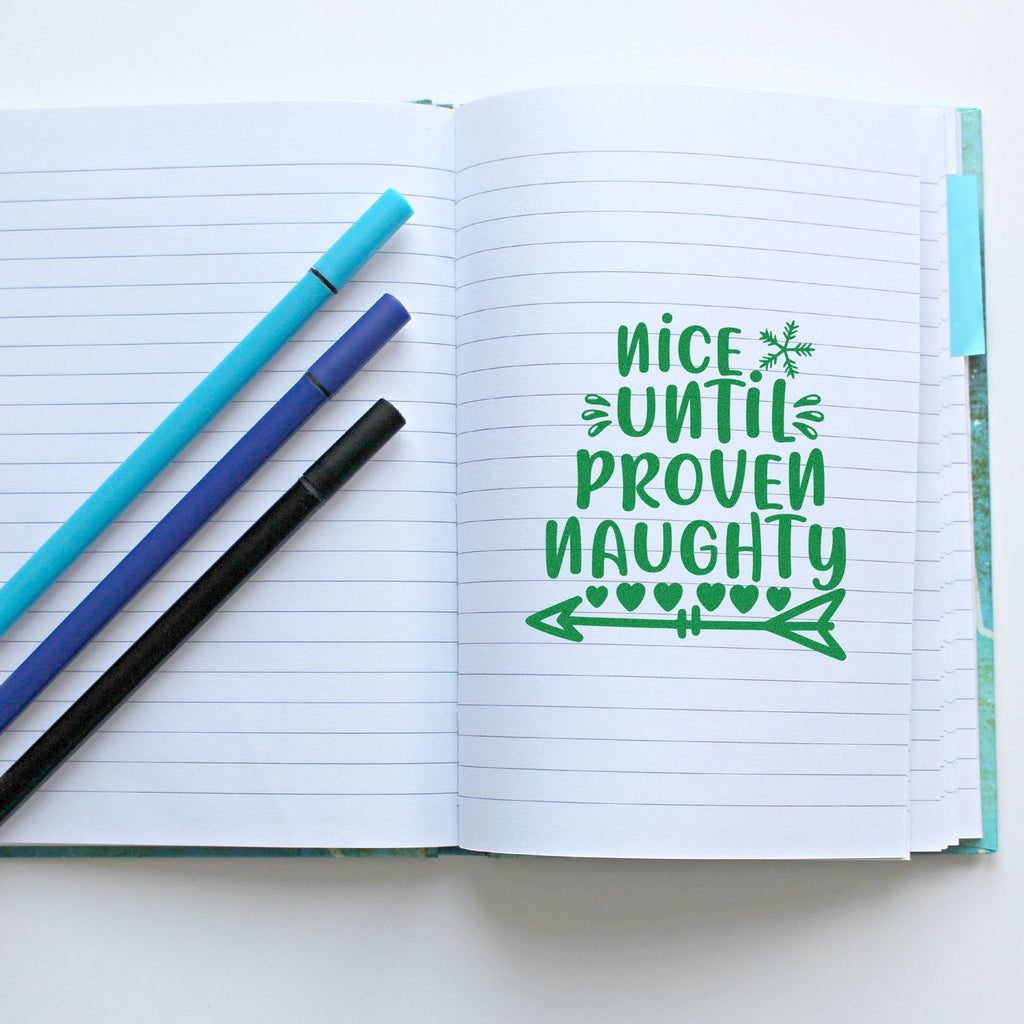 NiCE
UNTiL
PROVEN
NAUGHTY